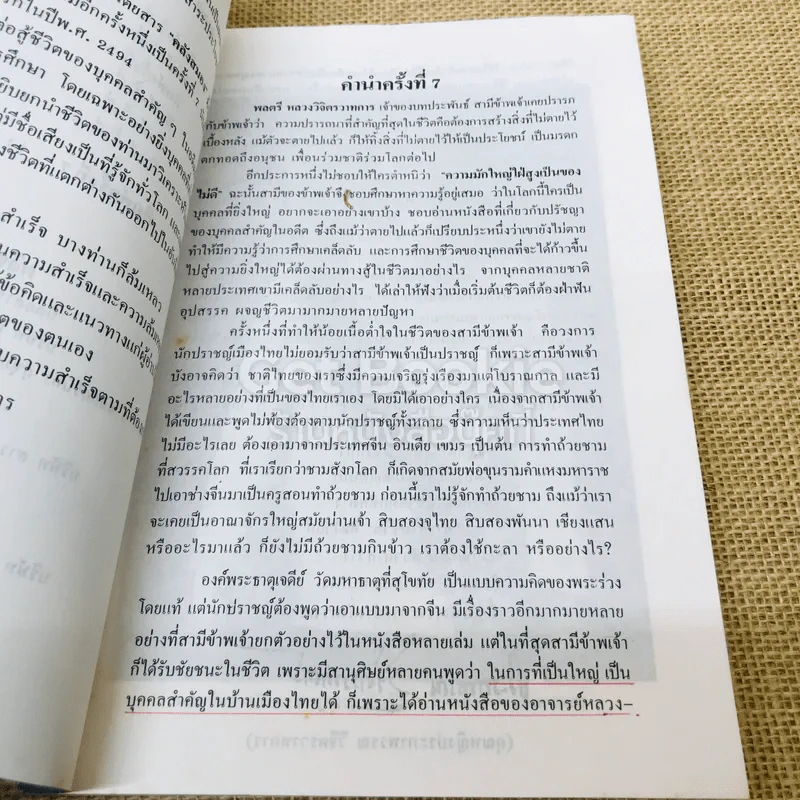 โดยสาร "คลังสมอง
มอีกครั้งหนึ่งเป็นครั้งที่ 7
รกในปีพ.ศ. 2494
ต่อสู้ชีวิตของบุคคลสำคัญ ๆ ในอดีต
รศึกษา โดยเฉพาะอย่างยิ่งบุคคล
ยิบยกนำชีวิตของท่านมาวิเคราะห์
มีชื่อเสียงเป็นที่รู้จักทั่วโลก และ
งชีวิตที่แตกต่างกันออกไปใน
สำเร็จ บางท่านก็ล้มเหลว
นความสำเร็จและความล้มเหลว
ข้อคิดและแนวทางแก่ผู้อ่าน
ตของตนเอง
บความสำเร็จตามที่ต้อง
การ
คำนำครั้งที่ 7
พลตรี หลวงวิจิตรวาทการ เจ้าของบทประพันธ์ สามีข้าพเจ้าเคยปรารภ
กับข้าพเจ้าว่า ความปรารถนาที่สำคัญที่สุดในชีวิตคือต้องการสร้างสิ่งที่ไม่ตายไว้
เบื้องหลัง แม้ตัวจะตายไปแล้ว ก็ให้ทิ้งสิ่งที่ไม่ตายไว้ให้เป็นประโยชน์ เป็นมรดก
ตกทอดถึงอนุชน เพื่อนร่วมชาติร่วมโลกต่อไป
อีกประการหนึ่งไม่ชอบให้ใครตำหนิว่า "ความมักใหญ่ใฝ่สูงเป็นของ
ไม่ดี" ฉะนั้นสามีของข้าพเจ้าจึงชอบศึกษาหาความรู้อยู่เสมอ ว่าในโลกนี้ใครเป็น
บุคคลที่ยิ่งใหญ่ อยากจะเอาอย่างเขาบ้าง ชอบอ่านหนังสือที่เกี่ยวกับปรัชญา
ของบุคคลสำคัญในอดีต ซึ่งถึงแม้ว่าตายไปแล้วก็เปรียบประหนึ่งว่าเขายังไม่ตาย
ทำให้มีความรู้ว่าการศึกษาเคล็ดลับ และการศึกษาชีวิตของบุคคลที่จะได้ก้าวขึ้น
ไปสู่ความยิ่งใหญ่ได้ต้องผ่านทางสู้ในชีวิตมาอย่างไร จากบุคคลหลายชาติ
หลายประเทศเขามีเคล็ดลับอย่างไร ได้เล่าให้ฟังว่าเมื่อเริ่มต้นชีวิตก็ต้องฝ่าฟัน
อุปสรรค ผจญชีวิตมามากมายหลายปัญหา
ครั้งหนึ่งที่ทำให้น้อยเนื้อต่ำใจในชีวิตของสามีข้าพเจ้า คือวงการ
นักปราชญ์เมืองไทยไม่ยอมรับว่าสามีข้าพเจ้าเป็นปราชญ์ ก็เพราะสามีข้าพเจ้า
บังอาจคิดว่า ชาติไทยของเราซึ่งมีความเจริญรุ่งเรืองมาแต่โบราณกาล และมี
อะไรหลายอย่างที่เป็นของไทยเราเอง โดยมิได้เอาอย่างใคร เนื่องจากสามีข้าพเจ้า
ได้เขียนและพูดไม่พ้องต้องตามนักปราชญ์ทั้งหลาย ซึ่งความเห็นว่าประเทศไทย
ไม่มีอะไรเลย ต้องเอามาจากประเทศจีน อินเดีย เขมร เป็นต้น การทำถ้วยชาม
ที่สวรรคโลก ที่เราเรียกว่าชามสังกโลก ก็เกิดจากสมัยพ่อขุนรามคำแหงมหาราช
ไปเอาช่างจีนมาเป็นครูสอนทำถ้วยชาม ก่อนนี้เราไม่รู้จักทำถ้วยชาม ถึงแม้ว่าเรา
จะเคยเป็นอาณาจักรใหญ่สมัยน่านเจ้า สิบสองจุไทย สิบสองพันนา เชียงแสน
หรืออะไรมาแล้ว ก็ยังไม่มีถ้วยชามกินข้าว เราต้องใช้กะลา หรืออย่างไร?
องค์พระธาตุเจดีย์ วัดมหาธาตุที่สุโขทัย เป็นแบบความคิดของพระร่วง
โดยแท้ แต่นักปราชญ์ต้องพูดว่าเอาแบบมาจากจีน มีเรื่องราวอีกมากมายหลาย
อย่างที่สามีข้าพเจ้ายกตัวอย่างไว้ในหนังสือหลายเล่ม แต่ในที่สุดสามีข้าพเจ้า
ก็ได้รับชัยชนะในชีวิต เพราะมีสานุศิษย์หลายคนพูดว่า ในการที่เป็นใหญ่ เป็น
บุคคลสำคัญในบ้านเมืองไทยได้ ก็เพราะได้อ่านหนังสือของอาจารย์หลวง-
Get Bookie
ร้านหนังสือกู๊ดที่